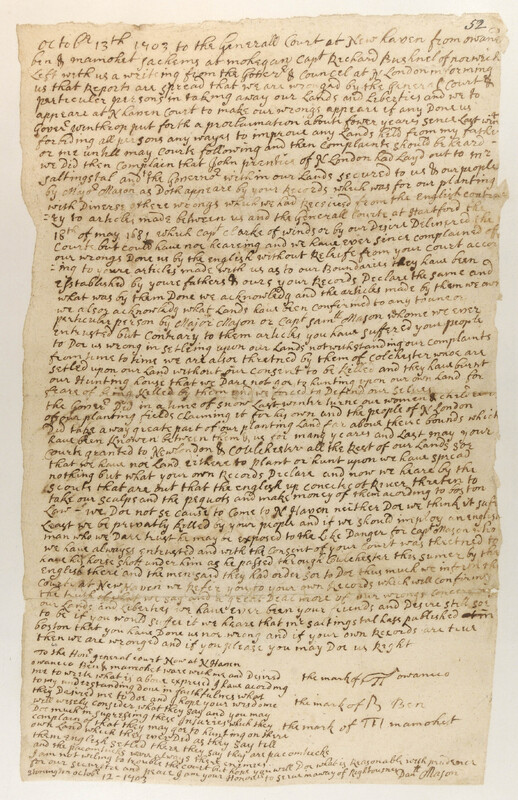 52
Octobr 13th 1703 to the Generall Court at New haven from owane
ben & mamohet sachems at mohegan Capt Richard Bushnel of norwich
Left with us a writing from the Gover & Councel at N London informing
us that Reports are spread that we are wronged by the Generall Court &
particuler persons in taking away our Lands and Liberties and we to
appeare at N haven Court to make our wrongs appeare if any Done us
Govr winthrop put forth a proclamation about fower years since Last
forbiding all persons any wayes to improve any Lands held from my father
or me untill may Courte following and then Complaints should be heard
we did then Complain that John prentice of N London had Layd out to mr
Saltingstal and the Govenor within our Lands secured to us & our people
by Major Mason as Doth appeare by your Records which was for our planting
with Diverse others wrongs which we had Received from the English contra
ry to articles made between us and the Generall Courte at Hartford
18th of may 1681 which Capt Clarke of windsor by our Desire Delivered the
Courte but could have nor hearing and we have ever since complained of
our wrongs Done us by the english without Reliefe from your Court acco
:ing to youre articles made with us as to our Boundaries they have been
Established by youre fathers & ours your Records Declare the same and
what was by them Done we acknowledg and the articles made by them we own
we allso acknowledg what Lands have been Confirmed to any towne or
perticuler person by Major Mason or Capt Saml Mason whome we ever
entrusted but Contrary to them articles you have suffered your people
to Dor us wrong in setleing upon our Lands notwithstanding our complaints
from time to time we are allsor thretned by them of Colchester who are
setled upon our Land without our Consent to be killed and they have burnt
our Hunting house that we Dare not gor to hunting upon our own land for
feare of being killed by them and we forced to Defend our selves
the Gover Did in a time of snow Last winter turne our women & children
of our planting fields claiming it for his own and the people of N London
Did take away greate part of our planting Land far above there bounds which
have been knowen between them & us for many yeares and Last may your
Courte granted to New London & Colchester all the Rest of our Lands sor
that we have nor Land eithere to plant or hunt upon we have spread
nothing but what your own Records Declare and now we heare by the
scouts that are out that the english up Conecticot River threten to
take our scalps and the pequots and make money of them acording to boston
Law - we Dor not se cause to Come to N Haven neither Dor we think it safe
Least we be privatly killed by your people and if we should imploy an english
man who we Dare trust he may be exposed to the Like Danger for Capt Mason
we have allwayes entrusted and with the Consent of your Court was thretned to
have his horse shot under him as he passed through Colchester this sumer by the
English there and the men said they had order sor to Dor thus much we inform the
Court at New Haven we Refer you to your own Records which will confirme
the truth of what we say
our Lands and Liberties we have ever been your friends and Desire still sor
to be if you would so se it we heare that mr Saltingstal has published at
boston that you have Done us nor wrong and if your own Records are true
then we are wronged and if you please you may Dor us Right
To the Honr general court Now at N Haven
owaneco Ben & mamohet ware with me and Desired
me to write what is above expresed I have acording
to my understanding done in faithfulnes what
they Desired me to dor and I hope your wisdome
will wisely consider what they say and you may
Dor much in supresing these Injuries which they
complain of that they may gor to hunting on there
own Land which they ever Did as they say tell
them english setled there they say they are pacomtucks
and the pacomtucks were always there enemies
I am not willing to trouble the court but hope you will Dor what is Reasonable with prudence
for our securitee and peace I am your Honores to serve in away of Rightousnes
Stonington octobr 12 - 1703
Danll Mason
the mark of owaneco
the mark of Ben
the mark of mamohet